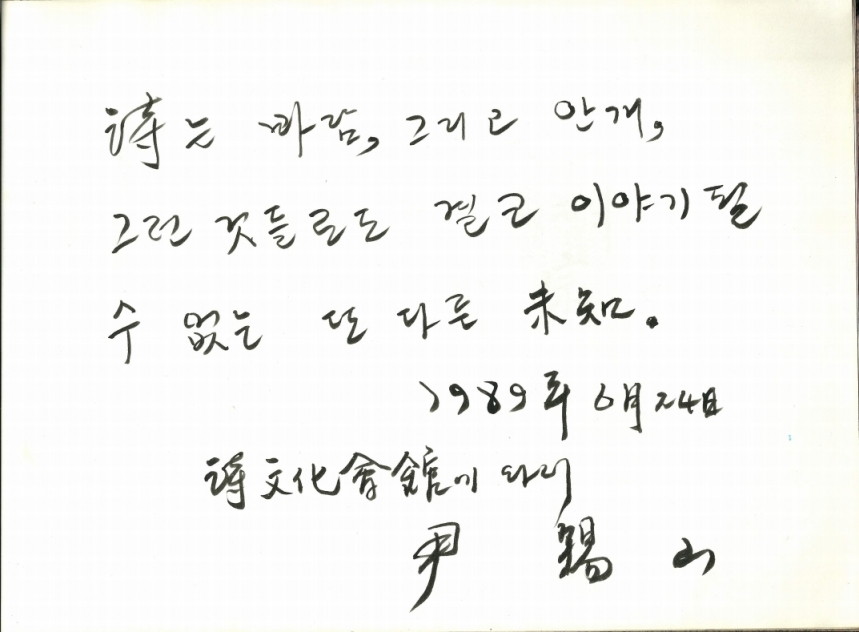 詩는 바람, 그리고 안개,
그런 것들로도 결코 이야기될
수 없는 또 다른 未知.
1989年 6月 24日
詩文化會館에 와서
尹 錫 山